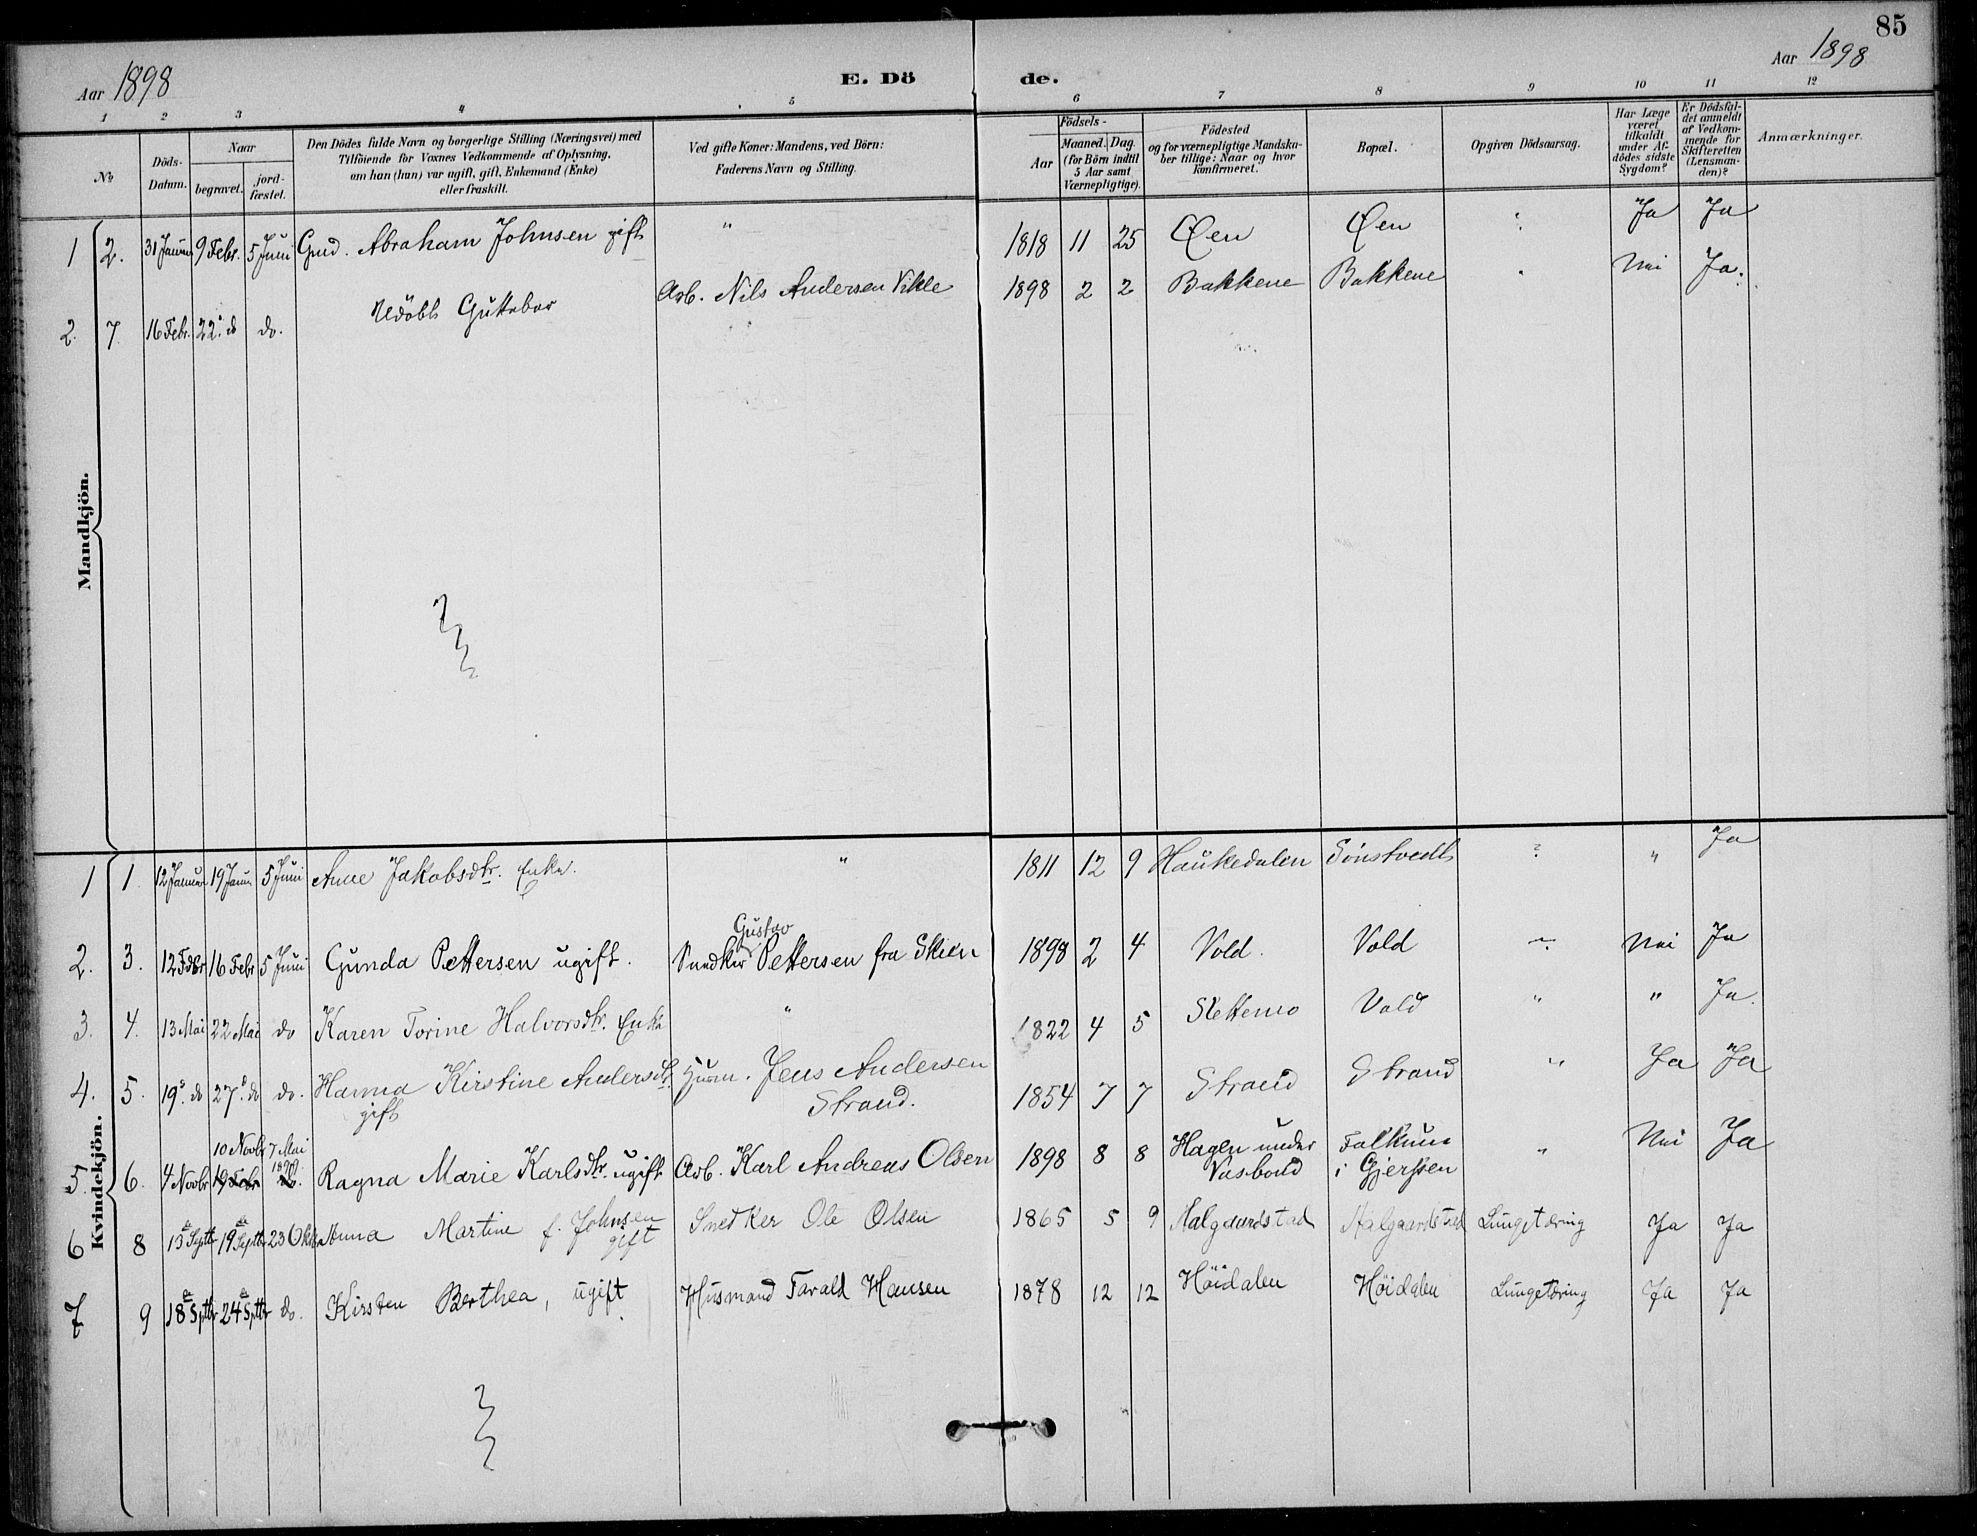 85
Aar 1898 E. Dö de. Aar 1898
1 2 3 4 5 6 7 8 9 10 11 12
№
Döds-Datum.
Naar
begravet.
jord-fæstet.
Den Dödes fulde Navn og borgerlige Stilling (Næringsvei) med
Tilföiende for Voxnes Vedkommende af Oplysning,
om han (hun) var ugift, gift, Enkemand (Enke)
eller fraskilt.
Ved gifte Koner: Mandens, ved Börn:
Faderens Navn og Stilling.
Födsels-
Aar
Maaned. Dag.
(for Börn indtil
5 Aar samt
Værnepligtige).
Födested
og for værnepligtige Mandska-
ber tillige: Naar og hvor
konfirmeret.
Bopæl.
Opgiven Dödsaarsag.
Har Læge
været
tilkaldt
under Af-
dödes sidste
Sygdom?
Er Dödsfal-
det anmeldt
af Vedkom-
mende for
Skifteretten
(Lensman-
den)?
Anmærkninger.
Mandkjön.
1 2. 31 Januar 9 Febr. 5 Juni Gmd. Abraham Johnsen gift " 1818 11 25 Øen Øen Ja Ja
2. 7. 16 Febr. 22. do do. Udöbt Guttebar Arb. Nils Andersen Vikle 1898 2 2 Bakkene Bakkene " Nei Ja.
Kvindekjön.
1 1. 12 Januar 19 Janu 5 Juni Anne Jakobsdtr. Enke. " 1811 12 9 Haukedalen Sönstvedt ? " Ja
2. 3. 12 Febr 16 Febr 5 Juni Gunda Pettersen ugift. Snedker Gustav Pettersen fra Skien 1898 2 4 Vold. Vold Nei Ja
3. 4. 13 Mai 22 Mai do Karen Torine Halvorsdtr. Enke " 1822 4 5 Slettemo Vold " " Ja.
4. 5. 19. do 27. do do. Hanna Kirstine Andersdtr. gift Husm. Jens Andersen Strand. 1854 7 7 Strand Strand " Ja Ja
5. 6. 4 Novbr 10 Novbr 7 Mai Ragna Marie Karlsdtr. ugift Arb. Karl Andreas Olsen 1898 8 8 Hagen under Vasbond Falkum i Gjerpen " Nei Ja
6 8 15 Septbr 19 Septbr 23 Oktbr Anna Martine f. Johnsen gift Snedker Ole Olsen 1865 5 9 Aalgaardstad Aalgaardstad Lungetæring Ja Ja
7 9 18 Sptbr 24 Sptbr do. Kirsten Berthea, ugift Husmand Tarald Hansen 1878 12 12 Höidalen Höidalen Lungetæring Ja Ja